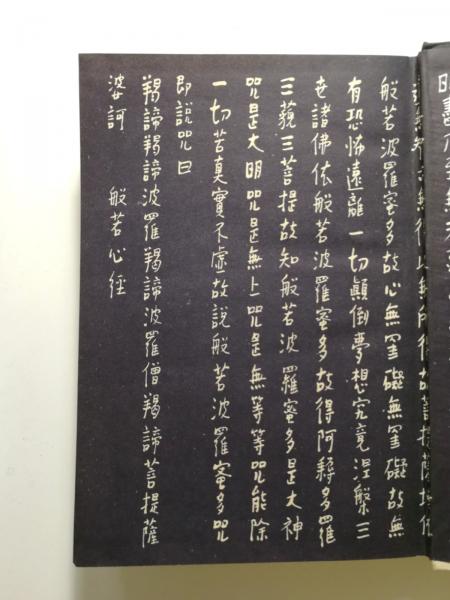 無得以無所得故菩提薩埵依
般若波羅蜜多故心無罣礙無罣礙故無
有恐怖遠離一切顛倒夢想究竟涅槃三
世諸佛依般若波羅蜜多故得阿耨多羅
三藐三菩提故知般若波羅蜜多是大神
咒是大明咒是無上咒是無等等咒能除
一切苦真實不虛故說般若波羅蜜多咒
即說咒曰
羯諦羯諦波羅羯諦波羅僧羯諦菩提薩
婆訶 般若心經